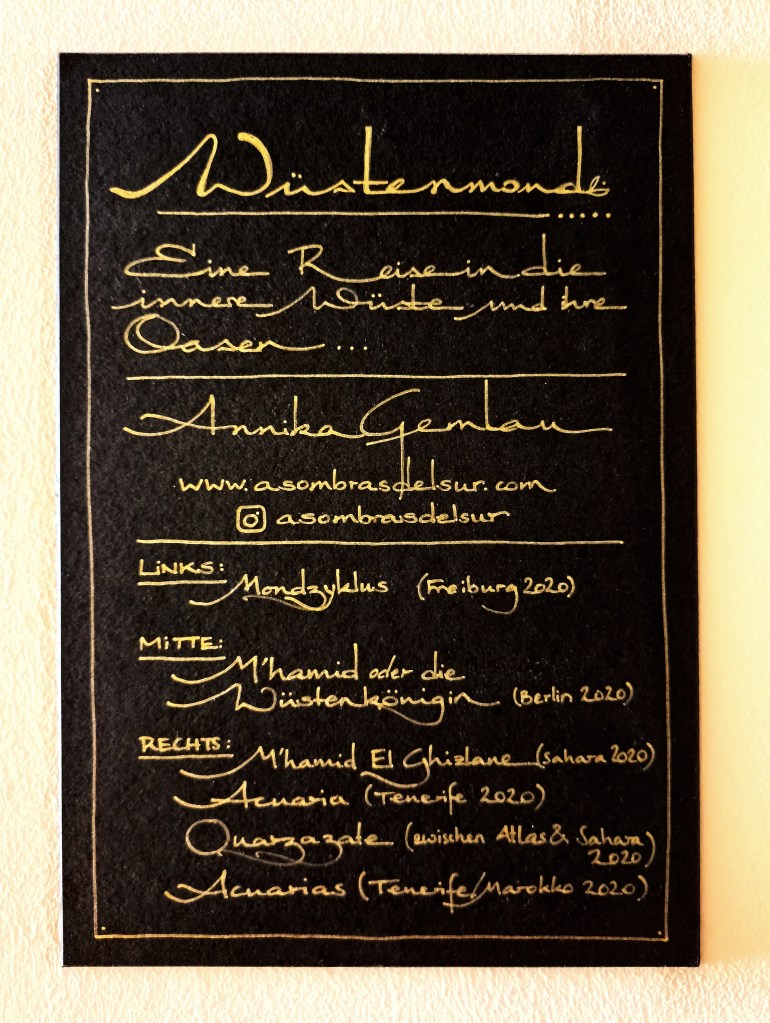 Wüstenmonde
.....
Eine Reise in die
innere Wüste und ihre
Oasen ...
Annika Gemlau
www.asombrasdelsur.com
asombrasdelsur
LiNKS:
Mondzyklus (Freiburg 2020)
MiTTE:
M'hamid oder die
Wüstenkönigin (Berlin 2020)
RECHTS:
M'hamid El Ghizlane (Sahara 2020)
Acuaria (Tenerife 2020)
Quarzazate (zwischen Atlas & Sahara
2020)
Acuarias (Tenerife/Marokko 2020)